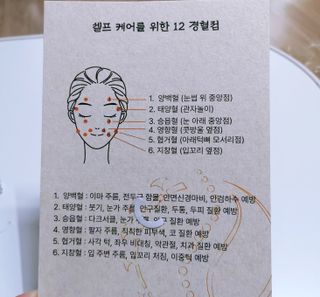 셀프 케어를 위한 12 경혈점
1. 양백혈 (눈썹 위 중앙점)
2. 태양혈 (관자놀이)
3. 승읍혈 (눈 아래 중앙점)
4. 영향혈 (콧방울 옆점)
5. 협거혈 (아래턱뼈 모서리점)
6. 지창혈 (입꼬리 옆점)
1. 양백혈 : 이마 주름, 전두근 함몰, 안면신경마비, 안검하수 예방
2. 태양혈 : 붓기, 눈가 주름, 안구질환, 두통, 두피 질환 예방
3. 승읍혈 : 다크서클, 눈가 질환 예방
4. 영향혈 : 팔자 주름, 칙칙한 피부색, 코 질환 예방
5. 협거혈 : 사각 턱, 좌우 비대칭, 악관절, 치과 질환 예방
6. 지창혈 : 입 주변 주름, 입꼬리 처짐, 이중턱 예방